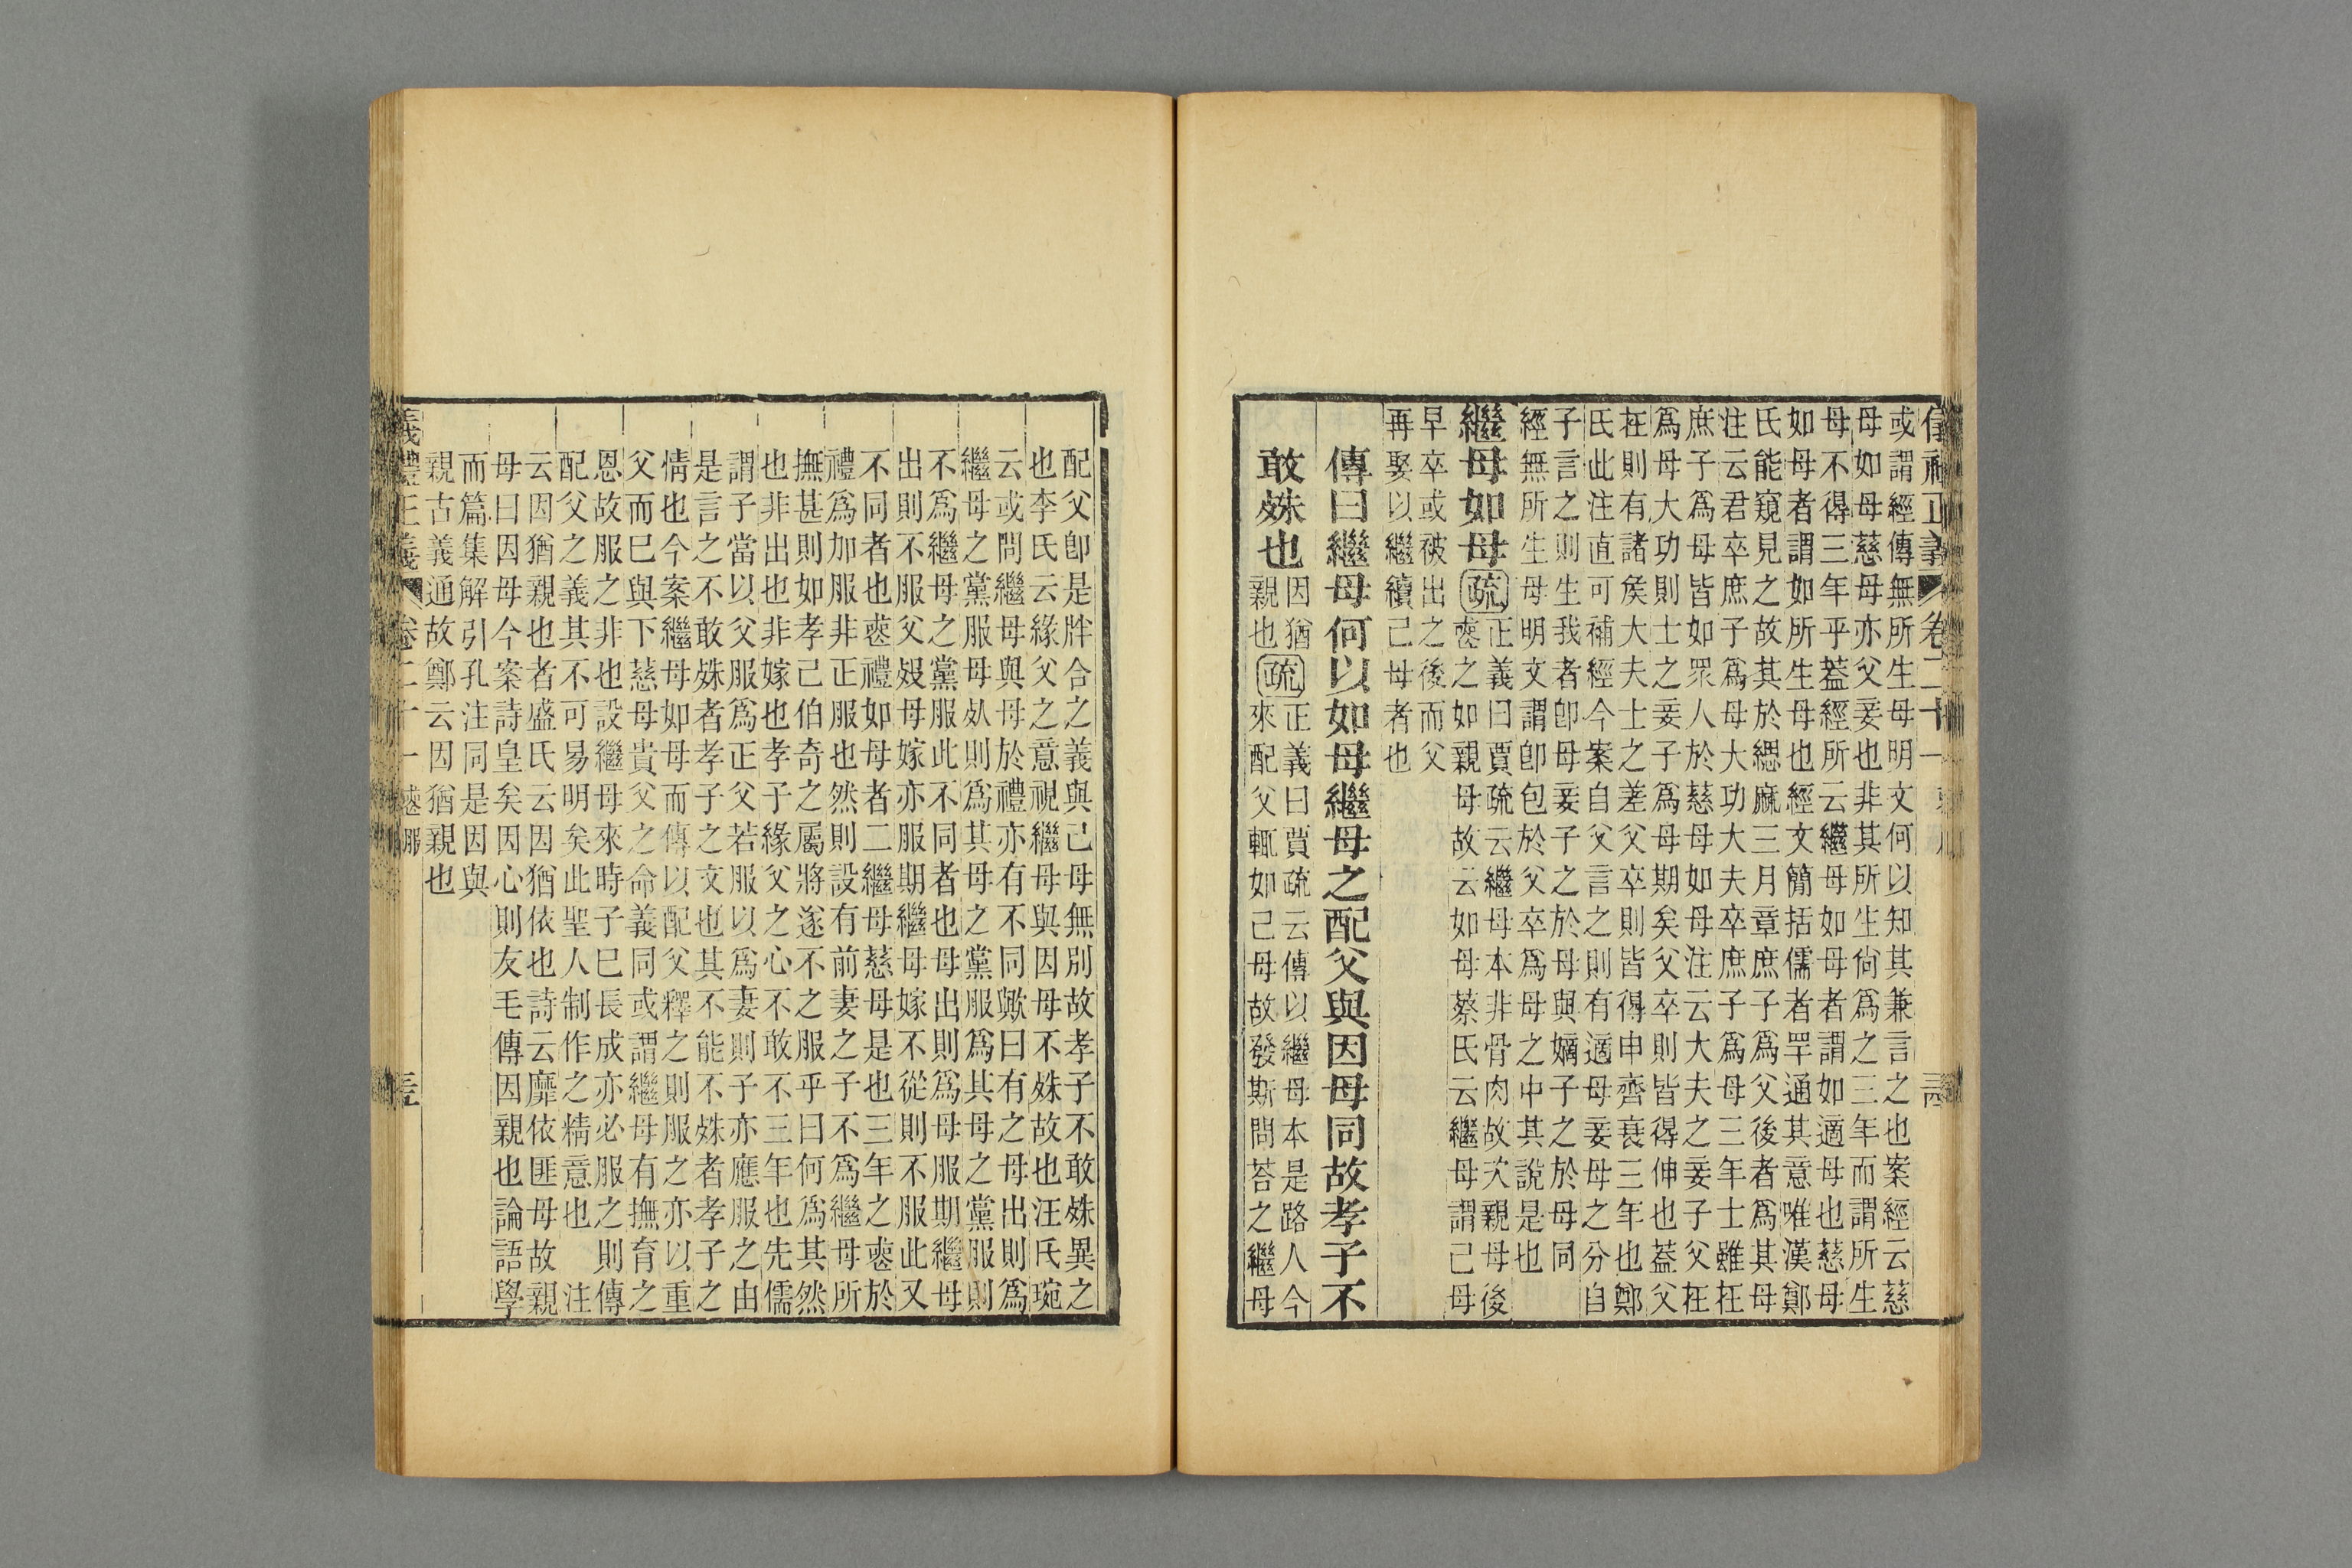 儀禮正義 卷二十一 喪服
或謂經傳無所生母明文何以知其兼言之也案經云慈
母如母慈母亦父妾也非其所生尙爲之三年而謂所生
母不得三年乎蓋經所云繼母如母者謂如適母也慈母
如母者謂如所生母也經文簡括儒者罕通其意唯漢鄭
氏能窺見之故其於緦麻三月章庶子爲父後者爲其母
注云君卒庶子爲母大功大夫卒庶子爲母三年士雖在
庶子爲母皆如眾人於慈母如母注云大夫之妾子父在
爲母大功則士之妾子爲母期矣父卒則皆得伸也蓋父
在則有諸矦大夫士之差父卒則皆得申齊衰三年也鄭
氏此注直可補經今案自父言之則有適母妾母之分自
子言之則生我者卽母妾子之於母與嫡子之於母同
經無所生母明文謂卽包於父卒爲母之中其說是也
繼母如母疏正義曰賈疏云繼母本非骨肉故次親母後
喪之如親母故云如母蔡氏云繼母謂己母
早卒或被出之後而父
再娶以繼續己母者也
傳曰繼母何以如母繼母之配父與因母同故孝子不
敢殊也因猶親也疏正義曰賈疏云傳以繼母本是路人今
來配父輒如己母故發斯問荅之繼母
配父卽是牉合之義與己母無別故孝子不敢殊異之
也李氏云緣父之意視繼母與因母不殊故也汪氏琬
云或問繼母與母於禮亦有不同歟曰有之母出則爲
繼母之黨服母死則爲其母之黨服爲其母之黨服則
不爲繼母之黨服此不同者也母出則爲母服期繼母
出則不服父歿母嫁亦服期繼母嫁不從則不服此又
不同者也喪禮如母者二繼母慈母是也三年之喪於
禮爲加服非正服也然則設有前妻之子不爲繼母所
撫甚則如孝己伯奇之屬將遂不之服乎曰何爲其然
也非出也非嫁也孝子緣父之心不敢不三年也先儒
謂子當以父服爲正父若服以爲妻則子亦應服之由
是言之不敢殊者孝子之文也其不能不殊者孝子之
情也今案繼母如母而傳以配父釋之則服之亦以重
父而巳與下慈母貴父之命義同或謂繼母有撫育之
恩故服之非也設繼母來時子巳長成亦必服之則傳
配父之義其不可易明矣此聖人制作之精意也 注
云因猶親也者盛氏云因猶依也詩云靡依匪母故親
母曰因母今案詩皇矣因心則友毛傳因親也論語學
而篇集解引孔注同是因與
親古義通故鄭云因猶親也
儀禮正義 卷二十一 喪服